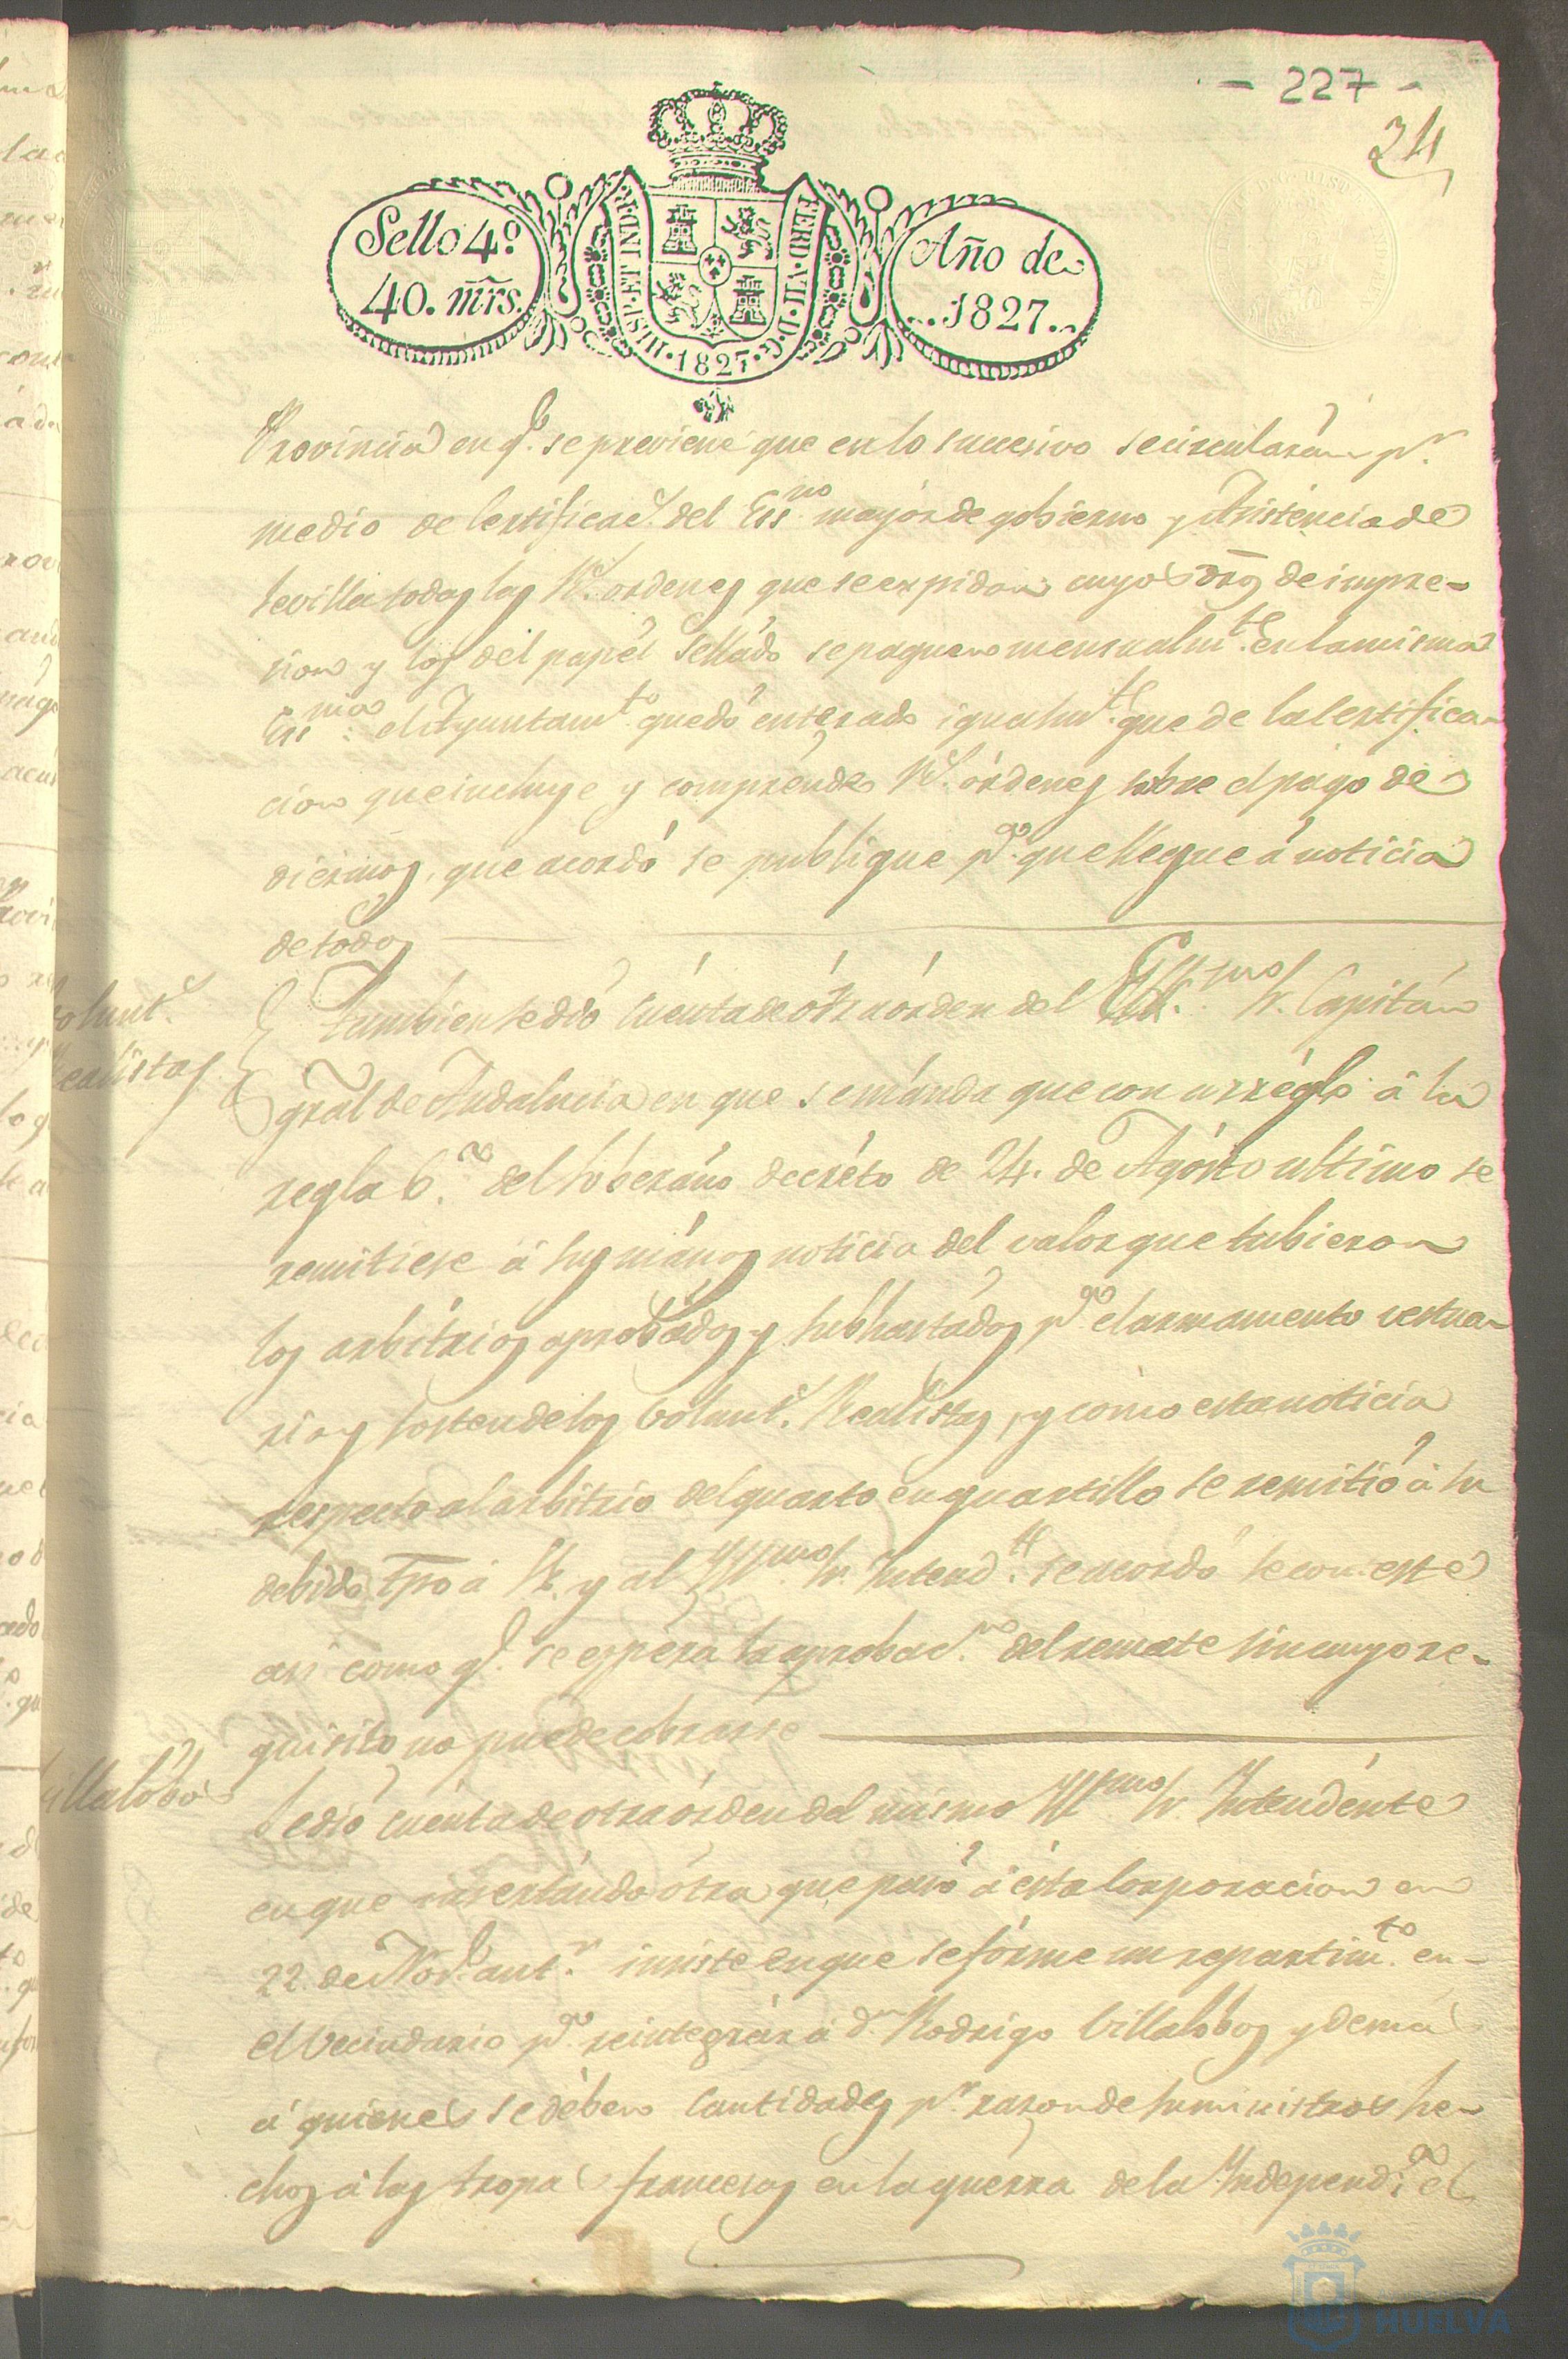 - 227 -
24
Sello 4º
40. mrs.
HISP. ET IND. R.
FERD. VII. D. G.
1827
Año de
1827
Provincia en q.e se previene que en lo succesivo se circularán p.r
medio de Certificac.s del Ess.no mayor de gobierno y Asistencia de
Sevilla todas las R.s ordenes que se expidan cuyos dros de impre-
sion y los del papel Sellado se paguen mensualm.te en la misma
Ess.nia: el Ayuntam.to quedó enterado igualm.te que de la Certifica-
cion que incluye y comprende R.s órdenes sobre el pago de
diezmos, que acordó se publique p.a que llegue á noticia
de todos
Volunt.s
Realistas
Tambien se dió cuenta de ótra órden del Exc.mo S.r Capitán
gral de Andalucia en que se mánda que con arréglo á la
regla 6.a del Soberáno decréto de 24. de Agósto ultimo se
remitiese á sus mános noticia del valor que tubieron
los arbitrios aprobados y subhastados p.a el armamento vestua-
rio y sosten de los Volunt.s Realistas, y como esta noticia
respecto al arbitrio del quarto en quartillo se remitió á su
debido tpo á S.E. y al Yll.mo S.r Intend.te se acordó se conteste
asi como q.e se espera la aprobac.n del remate sin cuyo re-
quisito no puede cobrarse
Villalóbos
Se dió cuenta de otra órden del mismo Yll.mo S.r Intendénte
en que insertándo ótra que pasó á ésta Corporacion en
22. de Nov.e ant.r insiste en que se fórme un repartim.to en-
el Vecindario p.a reintegrár á D.n Rodrigo Villalóbos y demas
á quienes se dében Cantidades p.r razon de suministros he-
chos á las tropas francesas en la guérra de la Independ.a el
HUELVA